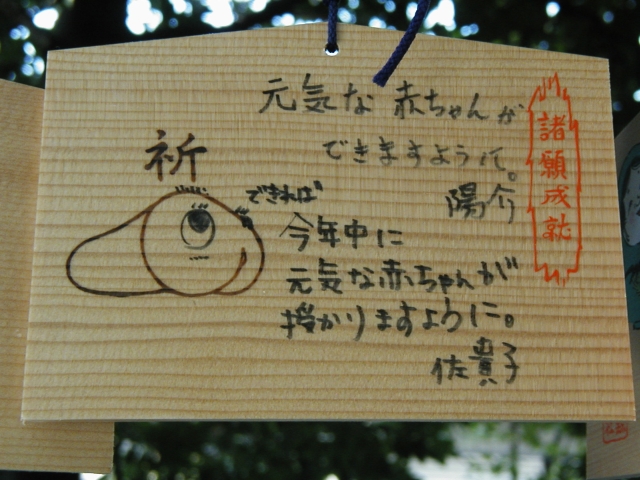 元気な赤ちゃんが
できますように。
陽介
祈
できれば
今年中に
元気な赤ちゃんが
授かりますように。
佐貴子
諸願成就